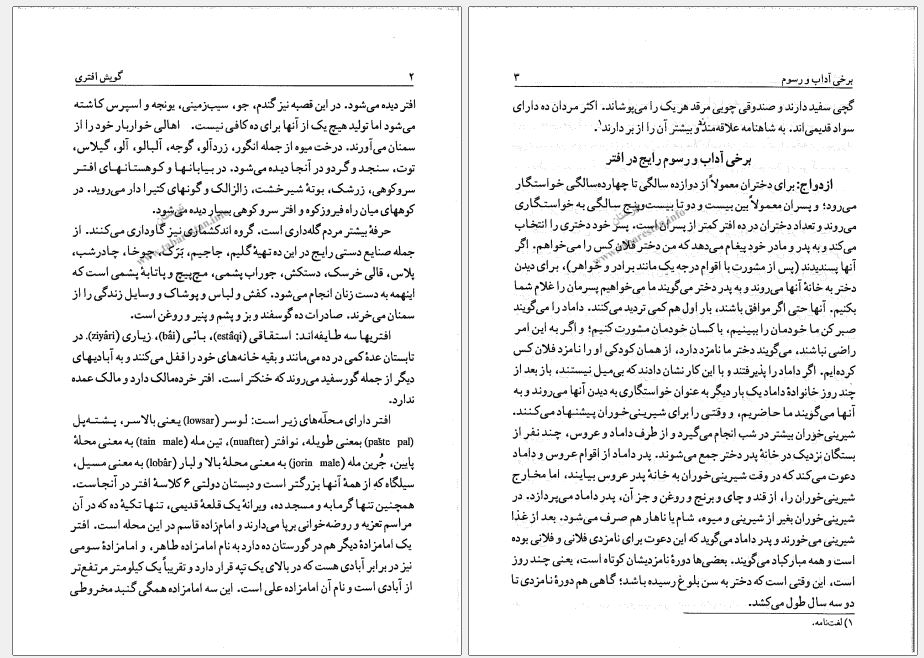 ۲ گویش افتری
افتر دیده می‌شود. در این قصبه نیز گندم، جو، سیب‌زمینی، یونجه و اسپرس کاشته
می‌شود اما تولید هیچ یک از آنها برای ده کافی نیست. اهالی خواربار خود را از
سمنان می‌آورند. درخت میوه از جمله انگور، زردآلو، گوجه، آلبالو، آلو، گیلاس،
توت، سنجد و گردو در آنجا دیده می‌شود. در بیابانها و کوهستانهای افتر
سروکوهی، زرشک، بوتهٔ شیرخشت، زالزالک و گونهای کتیرا دار می‌روید. در
کوههای میان راه فیروزکوه و افتر سرو کوهی بسیار دیده می‌شود.
حرفهٔ بیشتر مردم گله‌داری است. گروه اندکشماری نیز گاوداری می‌کنند. از
جمله صنایع دستی رایج در این ده تهیهٔ گلیم، جاجیم، بَرَک، چوخا، چادرشب،
پلاس، قالی خرسک، دستکش، جوراب پشمی، مچ‌پیچ و پاتابهٔ پشمی است که
اینهمه به دست زنان انجام می‌شود. کفش و لباس و پوشاک و وسایل زندگی را از
سمنان می‌خرند. صادرات ده گوسفند و بز و پشم و پنیر و روغن است.
افتریها سه طایفه‌اند: استقاقی (estâqi)، بائی (bâi)، زیاری (ziyâri). در
تابستان عدهٔ کمی در ده می‌مانند و بقیه خانه‌های خود را قفل می‌کنند و به آبادیهای
دیگر از جمله گورسفید می‌روند که خنکتر است. افتر خرده‌مالک دارد و مالک عمده
ندارد.
افتر دارای محلّه‌های زیر است: لوسر (lowsar) یعنی بالاسر، پشته‌پل
(pašte pal) بمعنی طویله، نوافتر (nuafter)، تین مله (tain male) به معنی محلهٔ
پایین، جُرین مله (jorin male) به معنی محلهٔ بالا و لبار (lobâr) به معنی مسیل،
سیلگاه که از همهٔ آنها بزرگتر است و دبستان دولتی ۶ کلاسهٔ افتر در آنجاست.
همچنین تنها گرمابه و مسجد ده، ویرانهٔ یک قلعهٔ قدیمی، تنها تکیهٔ ده که در آن
مراسم تعزیه و روضه‌خوانی برپا می‌دارند و امام‌زاده قاسم در این محله است. افتر
یک امامزادهٔ دیگر هم در گورستان ده دارد به نام امامزاده طاهر، و امامزادهٔ سومی
نیز در برابر آبادی هست که در بالای یک تپه قرار دارد و تقریباً یک کیلومتر مرتفع‌تر
از آبادی است و نام آن امامزاده علی است. این سه امامزاده همگی گنبد مخروطی
برخی آداب و رسوم ۳
گچی سفید دارند و صندوقی چوبی مرقد هر یک را می‌پوشاند. اکثر مردان ده دارای
سواد قدیمی‌اند. به شاهنامه علاقه‌مند و بیشتر آن را از بر دارند۱.
برخی آداب و رسوم رایج در افتر
ازدواج: برای دختران معمولاً از دوازده سالگی تا چهارده‌سالگی خواستگار
می‌رود؛ و پسران معمولاً بین بیست و دو تا بیست‌وپنج سالگی به خواستگاری
می‌روند و تعداد دختران در ده افتر کمتر از پسران است. پسر خود دختری را انتخاب
می‌کند و به پدر و مادر خود پیغام می‌دهد که من دختر فلان کس را می‌خواهم. اگر
آنها پسندیدند (پس از مشورت با اقوام درجه یک مانند برادر و خواهر)، برای دیدن
دختر به خانهٔ آنها می‌روند و به پدر دختر می‌گویند ما می‌خواهیم پسرمان را غلام شما
بکنیم. آنها حتی اگر موافق باشند، بار اول هم کمی تردید می‌کنند. داماد را می‌گویند
صبر کن ما خودمان را ببینیم، با کسان خودمان مشورت کنیم؛ و اگر به این امر
راضی نباشند، می‌گویند دختر ما نامزد دارد، از همان کودکی او را نامزد فلان کس
کرده‌ایم. اگر داماد را پذیرفتند و با این کار نشان دادند که بی‌میل نیستند، باز بعد از
چند روز خانوادهٔ داماد یک بار دیگر به عنوان خواستگاری به دیدن آنها می‌روند و به
آنها می‌گویند ما حاضریم، و وقتی را برای شیرینی‌خوران پیشنهاد می‌کنند.
شیرینی‌خوران بیشتر در شب انجام می‌گیرد و از طرف داماد و عروس، چند نفر از
بستگان نزدیک در خانهٔ پدر دختر جمع می‌شوند. پدر داماد از اقوام عروس و داماد
دعوت می‌کند که در وقت شیرینی‌خوران به خانهٔ پدر عروس بیایند، اما مخارج
شیرینی‌خوران را، از قند و چای و برنج و روغن و جز آن، پدر داماد می‌پردازد. در
شیرینی‌خوران بغیر از شیرینی و میوه، شام یا ناهار هم صرف می‌شود. بعد از غذا
شیرینی می‌خورند و پدر داماد می‌گوید که این دعوت برای نامزدی فلانی و فلانی بوده
است و همه مبارکباد می‌گویند. بعضی‌ها دورهٔ نامزدیشان کوتاه است، یعنی چند روز
است، این وقتی است که دختر به سن بلوغ رسیده باشد؛ گاهی هم دورهٔ نامزدی تا
دو سه سال طول می‌کشد.
۱) لغت‌نامه.